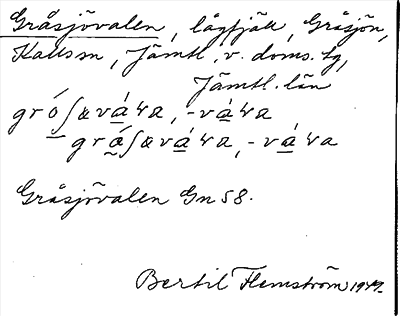 Gråsjövalen, lågfjäll, Gråsjön,
Kallssn, Jämtl., v. doms. tg,
Jämtl. län
gró̱ʃævá̱ꝇa, -vá̱ꝇa
grá̱ʃævá̱ꝇa, -vá̱ꝇa
Gråsjövalen Gn 58.
Bertil Flemström 1949.